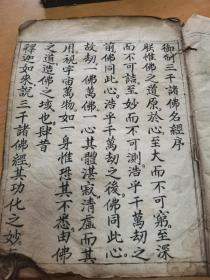 御制三千诸佛名經序
朕惟佛之道原於心至大而不可窮至深
而不可詰至妙而不可測浩乎千萬劫之
前佛同此心浩乎千萬劫之後佛同此心
故刼佛萬佛一心其體湛寂清虛而其
用視宇宙萬物如一身惟恐其不悉由佛
之道造佛之域也肆昔
釋迦如來說三千諸佛經其功化之妙